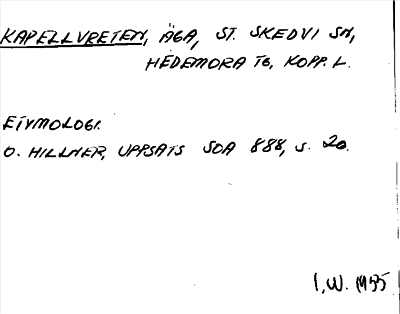 KAPELLVRETEN, ÄGA, ST. SKEDVI SN,
HEDEMORA TG, KOPP. L.
ETYMOLOGI.
O. HILLNER, UPPSATS SOA 888, S. 20.
I.W. 1955